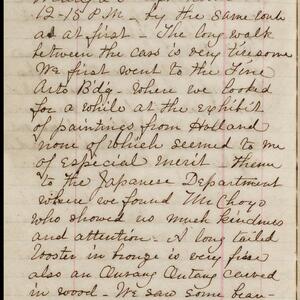 12-15 P.M. - by the same route
as at first - The long walk
between the cars is very tiresome
We first went to the Fine
Arts Bdg - Where we looked
for a while at the exhibit
of paintings from Holland
none of which seemed to me
of especial merit - thence
to the Japanese Department
where we found Mr Choyo
who showed us much kindness
and attention. A long tailed
rooster in bronze is very fine
also an Ourang Outang carved
in wood - We saw some beau-